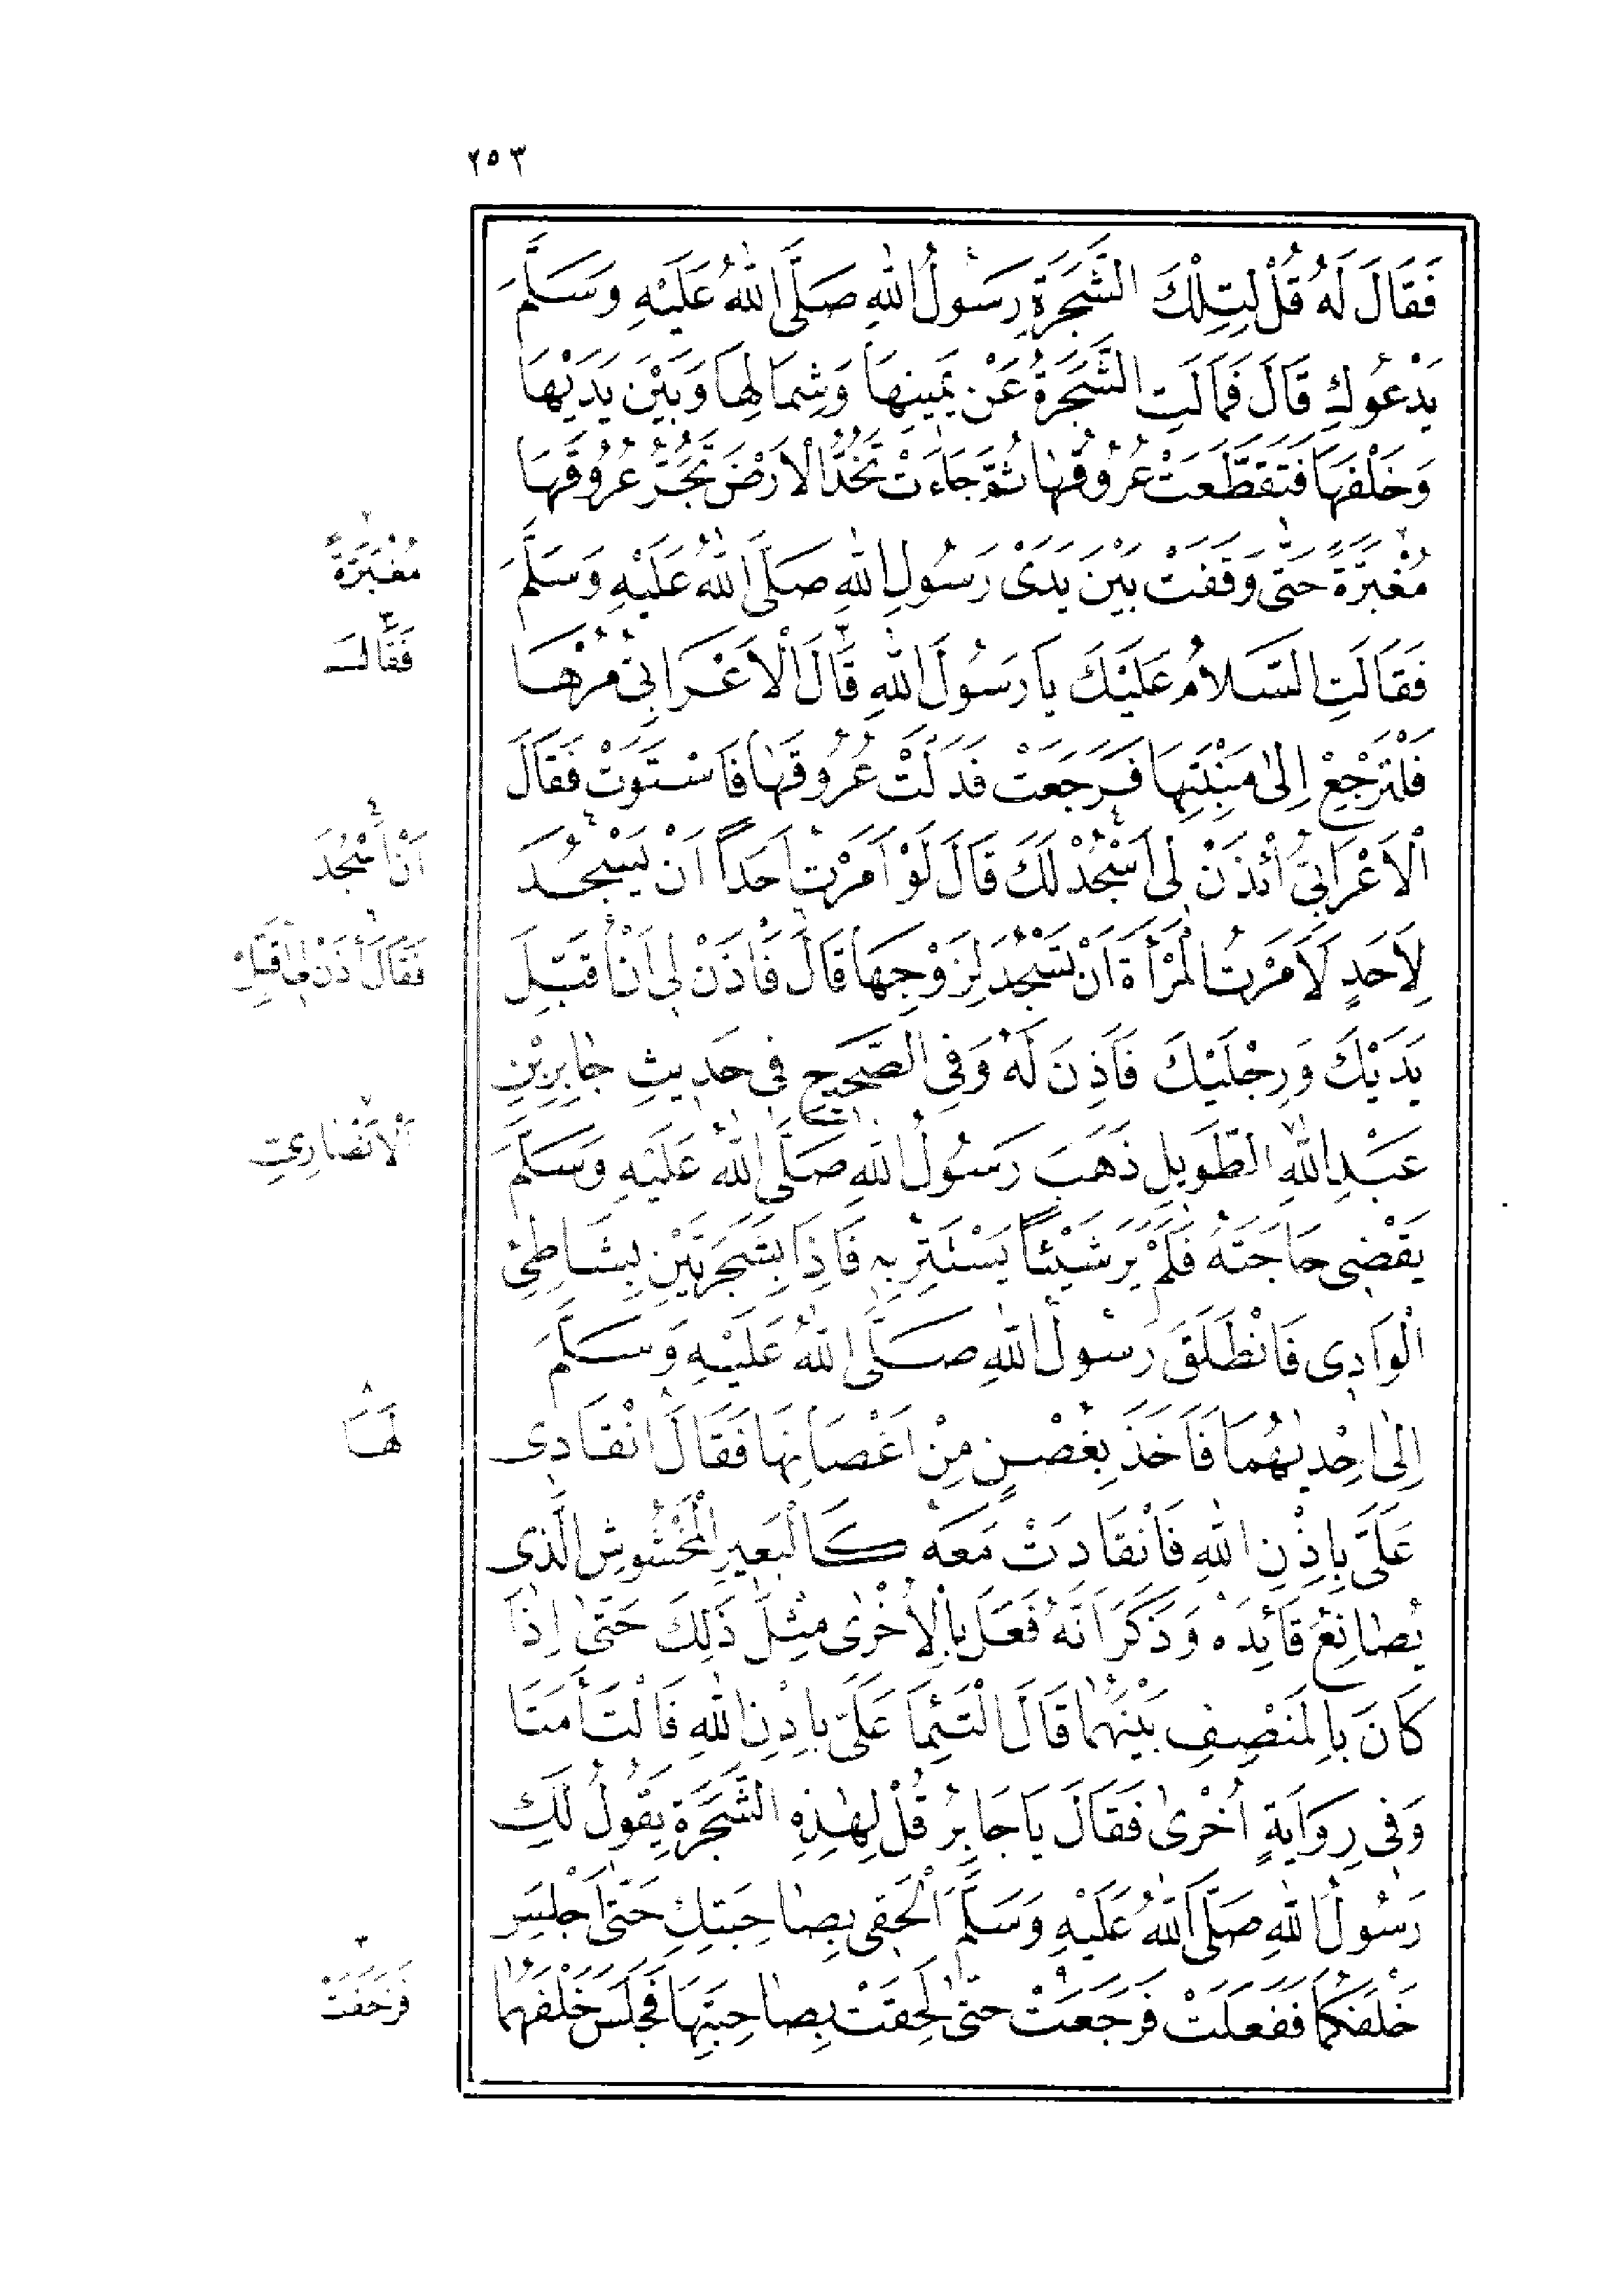 ٢٥٣
فَقَالَ لَهُ قُلْ لِتِلْكَ الشَّجَرَةِ رَسُولُ اللهِ صَلَّى اللهُ عَلَيْهِ وَسَلَّمَ
يَدْعُوكِ قَالَ فَمَالَتِ الشَّجَرَةُ عَنْ يَمِينِهَا وَشِمَالِهَا وَبَيْنَ يَدَيْهَا
وَخَلْفَهَا فَتَقَطَّعَتْ عُرُوقُهَا ثُمَّ جَاءَتْ تَخُدُّ الْاَرْضَ تَجُرُّ عُرُوقَهَا
مُغْبَرَّةً حَتّٰى وَقَفَتْ بَيْنَ يَدَىْ رَسُولِ اللهِ صَلَّى اللهُ عَلَيْهِ وَسَلَّمَ
فَقَالَتِ السَّلَامُ عَلَيْكَ يَا رَسُولَ اللهِ قَالَ الْاَعْرَابِىُّ مُرْهَا
فَلْتَرْجِعْ اِلٰى مَنْبِتِهَا فَرَجَعَتْ فَدَلَّتْ عُرُوقَهَا فَاسْتَوَتْ فَقَالَ
الْاَعْرَابِىُّ ائْذَنْ لِى اَسْجُدْ لَكَ قَالَ لَوْ اَمَرْتُ اَحَدًا اَنْ يَسْجُدَ
لِاَحَدٍ لَاَمَرْتُ الْمَرْأَةَ اَنْ تَسْجُدَ لِزَوْجِهَا قَالَ فَأْذَنْ لِى اَنْ اُقَبِّلَ
يَدَيْكَ وَرِجْلَيْكَ فَاَذِنَ لَهُ وَفِى الصَّحِيحِ فِى حَدِيثِ جَابِرِ بْنِ
عَبْدِ اللهِ الطَّوِيلِ ذَهَبَ رَسُولُ اللهِ صَلَّى اللهُ عَلَيْهِ وَسَلَّمَ
يَقْضِى حَاجَتَهُ فَلَمْ يَرَ شَيْئًا يَسْتَتِرُ بِهِ فَاِذَا بِشَجَرَتَيْنِ بِشَاطِئِ
الْوَادِى فَانْطَلَقَ رَسُولُ اللهِ صَلَّى اللهُ عَلَيْهِ وَسَلَّمَ
اِلٰى اِحْدٰيهُمَا فَاَخَذَ بِغُصْنٍ مِنْ اَغْصَانِهَا فَقَالَ انْقَادِى
عَلَىَّ بِاِذْنِ اللهِ فَانْقَادَتْ مَعَهُ كَالْبَعِيرِ الْمَخْشُوشِ الَّذِى
يُصَانِعُ قَائِدَهُ وَذَكَرَ اَنَّهُ فَعَلَ بِالْاُخْرٰى مِثْلَ ذَلِكَ حَتّٰى اِذَا
كَانَ بِالْمَنْصِفِ بَيْنَهُمَا قَالَ الْتَئِمَا عَلَىَّ بِاِذْنِ اللهِ فَالْتَأَمَتَا
وَفِى رِوَايَةٍ اُخْرٰى فَقَالَ يَا جَابِرُ قُلْ لِهٰذِهِ الشَّجَرَةِ يَقُولُ لَكِ
رَسُولُ اللهِ صَلَّى اللهُ عَلَيْهِ وَسَلَّمَ اَلْحَقِى بِصَاحِبَتِكِ حَتّٰى اَجْلِسَ
خَلْفَكُمَا فَفَعَلَتْ فَرَجَعَتْ حَتّٰى لَحِقَتْ بِصَاحِبَتِهَا فَجَلَسَ خَلْفَهُمَا
٢
مُغْبَرَّةً
٣
فَقَالَ
٤
اَنْ اَسْجُدَ
٦
فَقَالَ أْذَنْ لِى اُقَبِّلْ
٧
اَلْاَنْصَارِىِّ
٨
لَهَا
٣
فَزَحَفَتْ